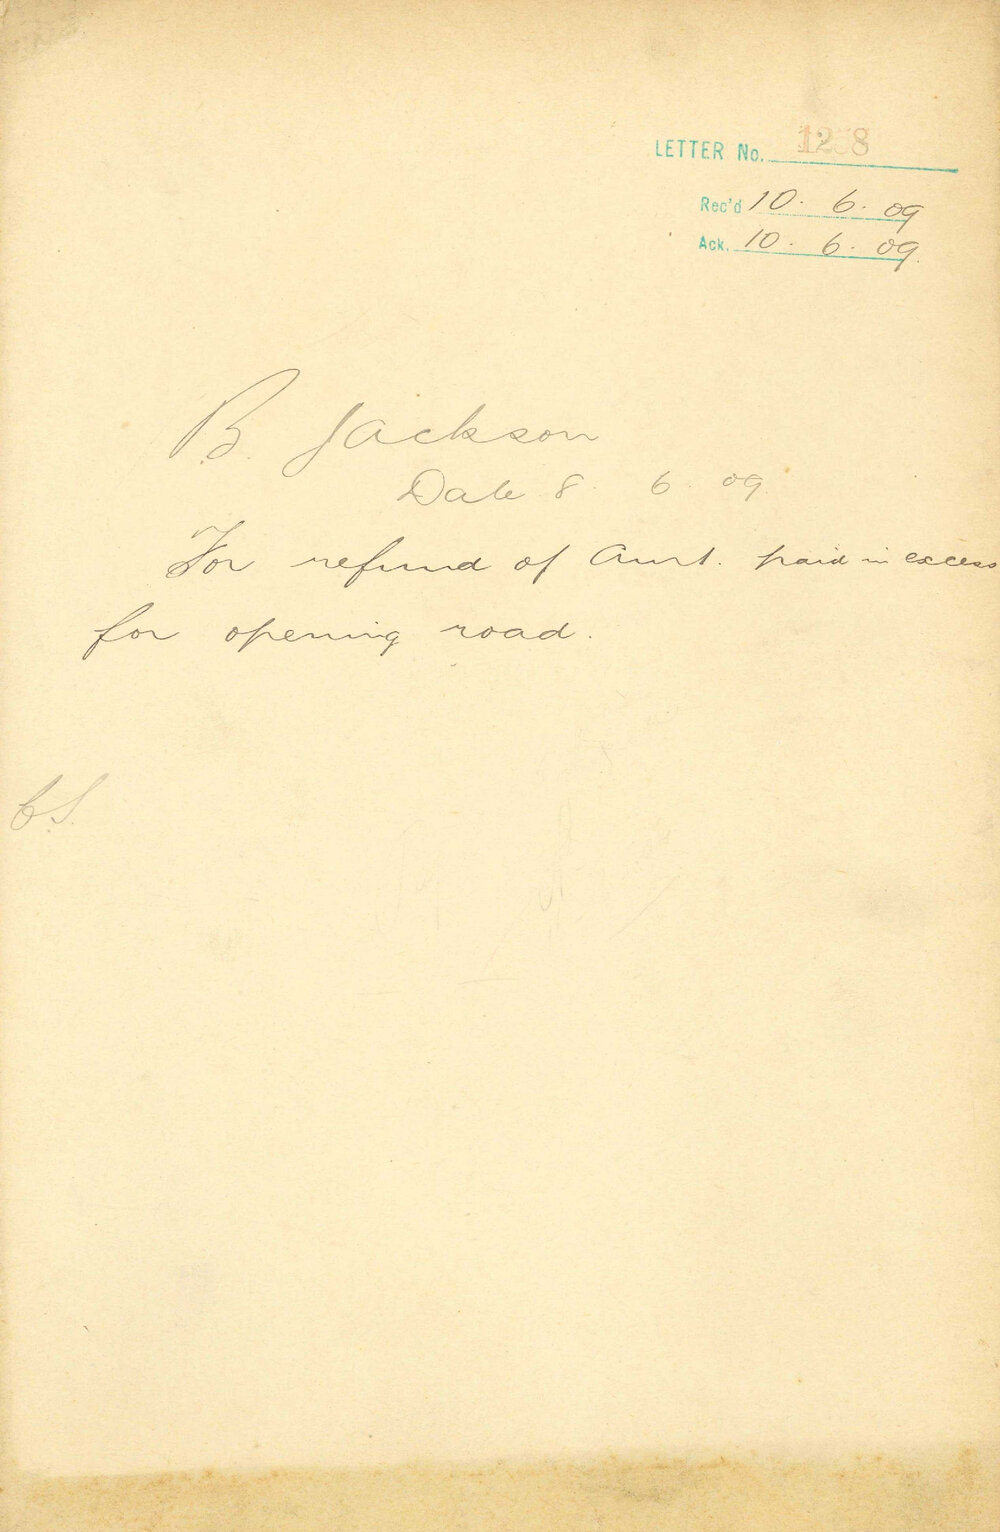 LETTER No.
Rec'd 10. 6. 09
Ack. 10. 6. 09.
B. Jackson
Date 8. 6. 09
For refund of Amt. paid in excess
for opening road.